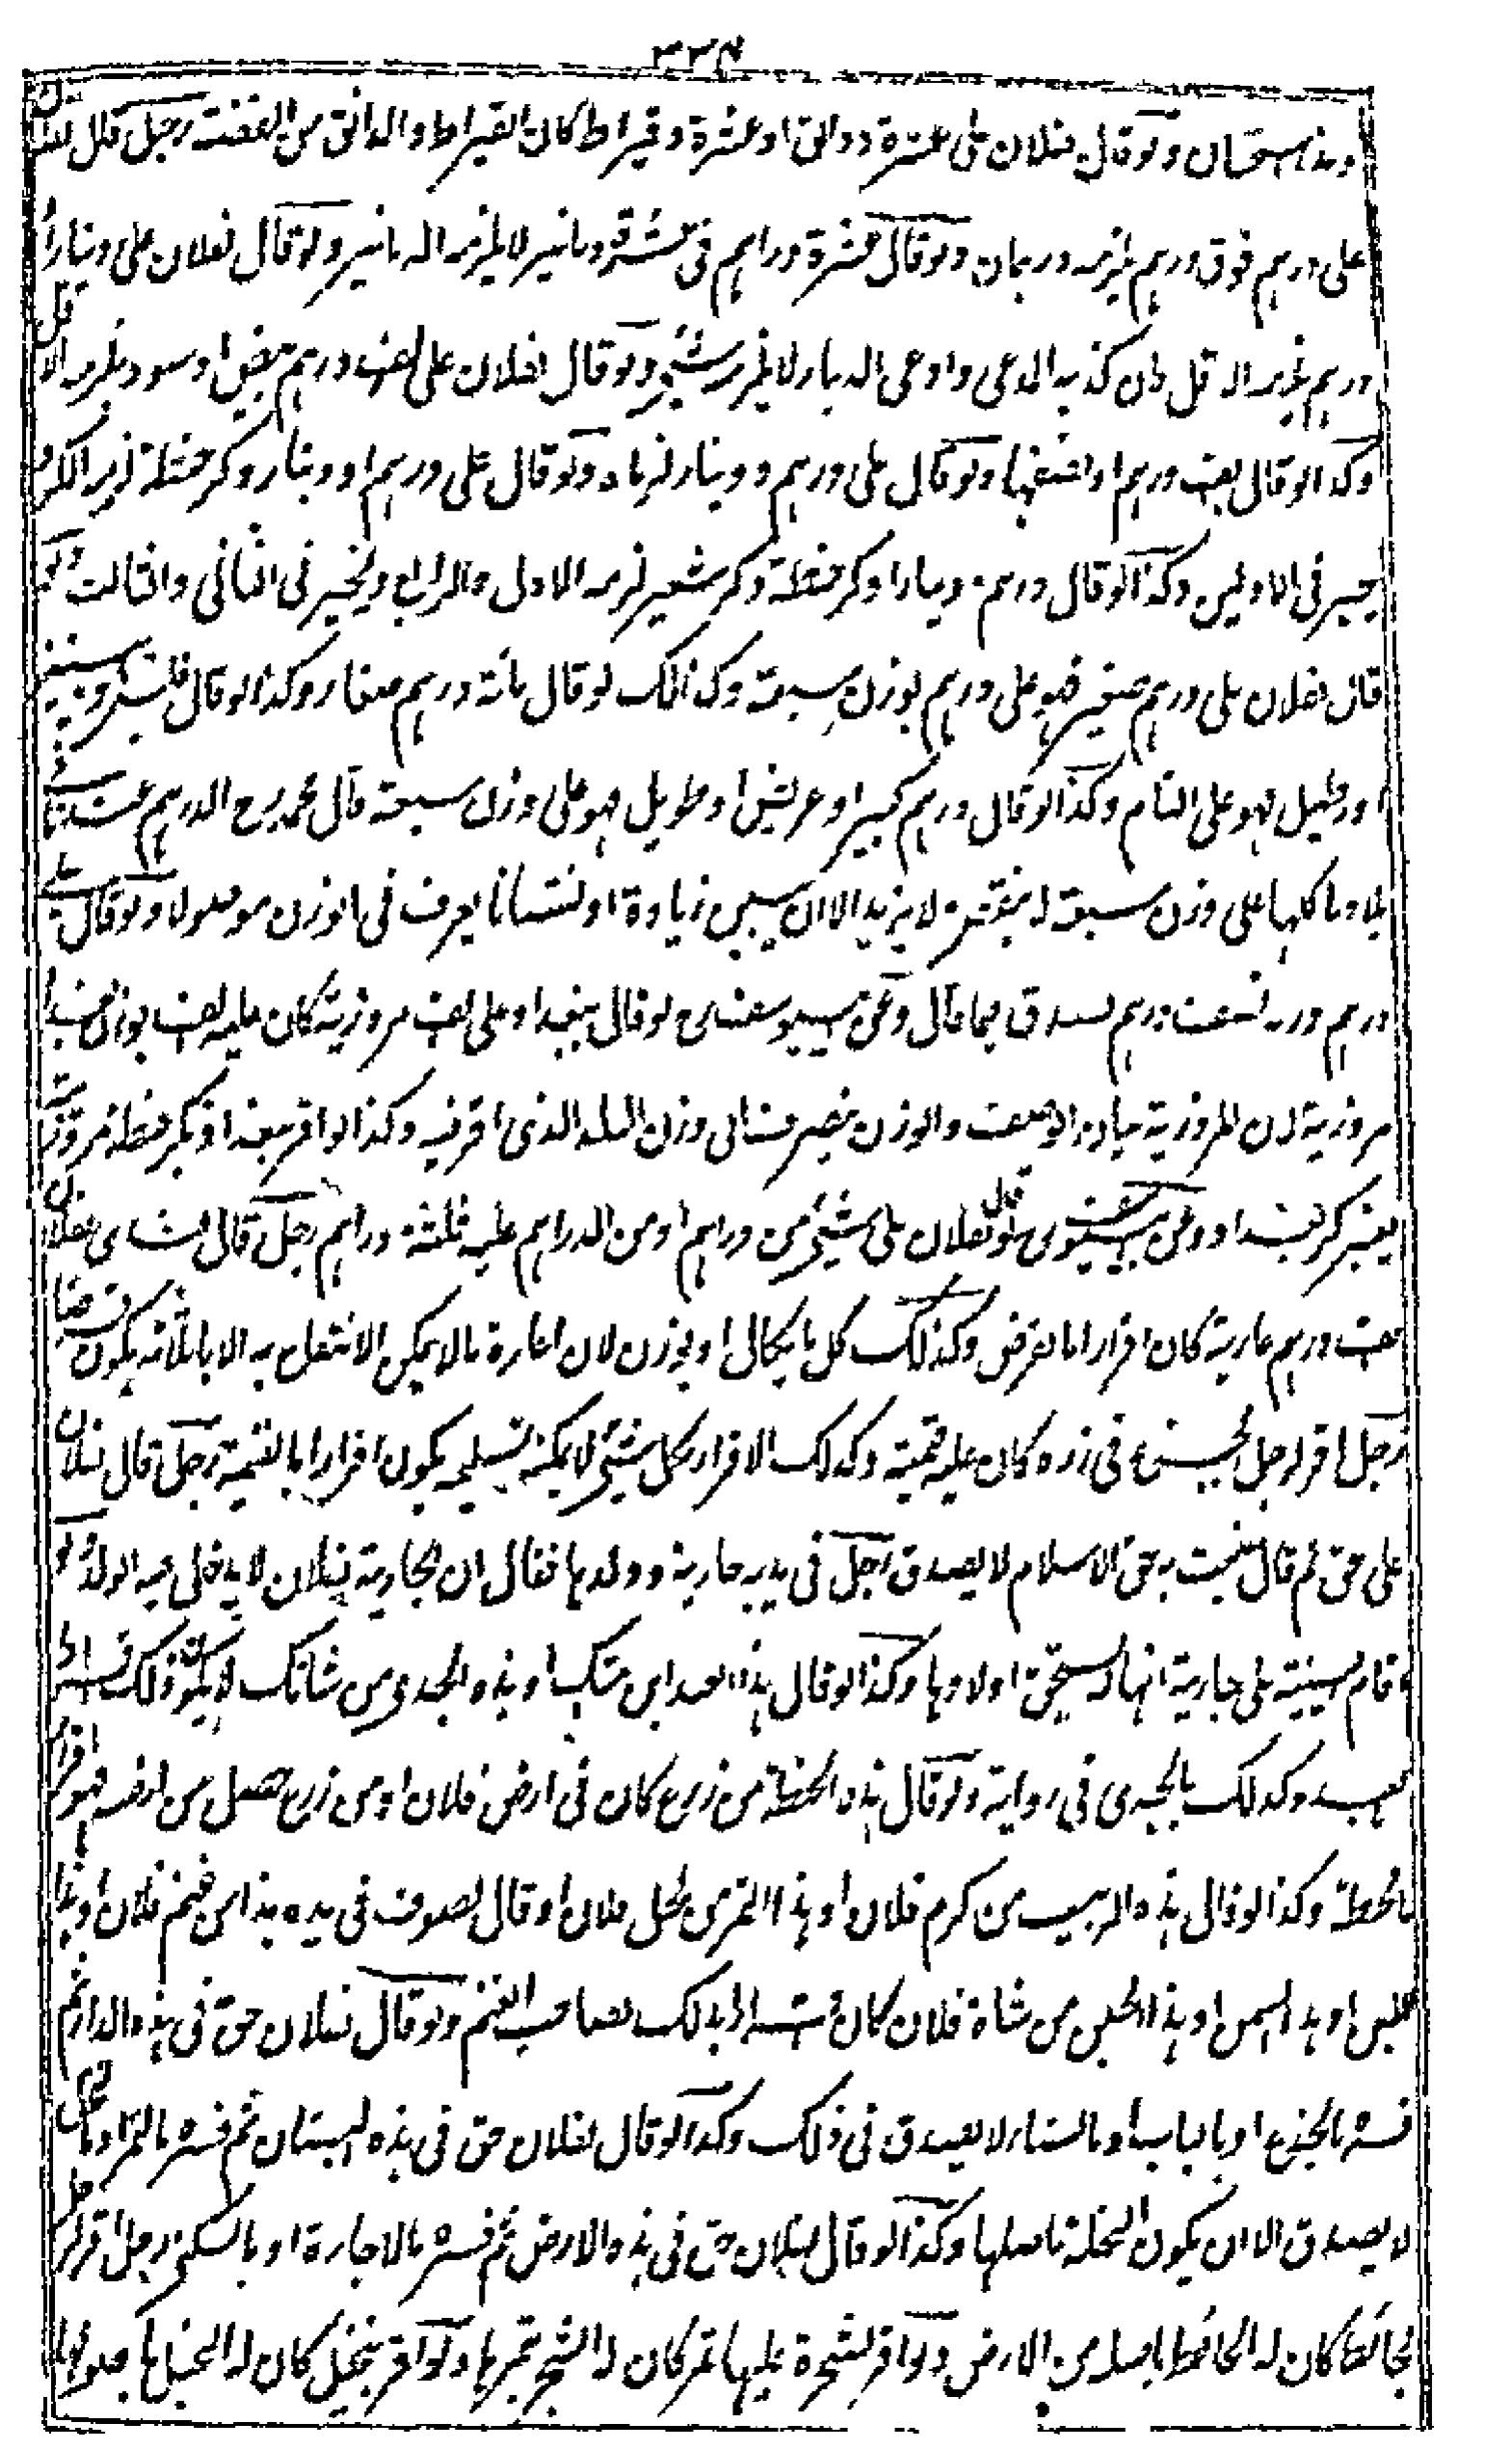 ٣٣٤
ولو قال لفلان على عشرة دوانق او عشرة وقيراط كان القيراط والدانق من الفضة رجل قال لفلان
على درهم فوق درهم يلزمه درهمان ولو قال عشرة دراهم فى عشرة دنانير لا يلزمه الدنانير ولو قال لفلان على دينارا او
درهم يلزمه الاقل فان كذبه المدعى وادعى الدينار لا يلزمه شئ ولو قال لفلان على الف درهم بيض او سود يلزمه الاقل
وكذا لو قال الف درهم او نصفها ولو قال على درهم ودينار لزماه ولو قال على درهم او دينار وكر حنطة لزمه الكر و
يخير فى الاولين وكذا لو قال درهم ودينار او كر حنطة وكر شعير لزمه الاول والرابع ويخير فى الثانى والثالث ولو
قال لفلان على درهم صغير فهو على درهم بوزن سبعة وكذلك لو قال مائة درهم صغار وكذا لو قال
او رطيل فهو على التام وكذا لو قال درهم كبير او عريض او طويل فهو على وزن سبعة قال محمد رح الدرهم عندنا
بلادنا كلها على وزن سبعة لا ينقص ولا يزيد الا ان يسمى زيادة او نقصانا يعرف فى الوزن موصولا ولو قال على
درهم وزنه نصف درهم يصدق فيما قال وعن ابى يوسف لو قال ببغداد على الف مروزية كان عليه الف بوزن بغداد
مروزية لان المروزية بيان الوصف والوزن ينصرف الى وزن البلد الذى اقر فيه وكذا لو اقر ببغداد بكر حنطة مروزية
يعتبر كر بغداد وعن ابى يوسف لو قال لفلان على شئ من دراهم او من الدراهم عليه ثلثة دراهم رجل قال عندى لفلان
الف درهم عارية كان اقرارا بالقرض وكذلك كل ما يكال او يوزن لان اعارة ما لا يمكن الانتفاع به الا باتلافه يكون قرضا
رجل اقر لرجل بخشبة فى داره كان عليه قيمته وكذلك الاقرار بكل شئ لا يمكنه تسليمه يكون اقرارا بالقيمة رجل قال لفلان
على حق ثم قال عنيت به حق الاسلام لا يصدق رجل فى يديه جارية وولدها فقال ان الجارية لفلان لا يدخل فيه الولد ولو
اقام البينة على جارية انها له يستحق اولادها وكذا لو قال هذا العبد ابن امتك او هذه الجدى من شاتك لا يكون ذلك اقرارا
بالعبد وكذلك بالجدى فى رواية ولو قال هذه الحنطة من زرع كان فى ارض فلان او من زرع حصل من ارضه فهو اقرار
بالحنطة وكذا لو قال هذه الزبيب من كرم فلان او هذا التمر من نخل فلان او قال لصوف فى يده هذا من غنم فلان او هذا
اللبن او هذا السمن او هذا الجبن من شاة فلان كان اقرارا بذلك لصاحب الغنم ولو قال لفلان حق فى هذه الدار ثم
فسره بالجذع او بالباب او بالبناء لا يصدق فى ذلك وكذا لو قال لفلان حق فى هذه البستان ثم فسره بالتمر او بالنخل
لا يصدق الا ان يكون النخلة باصلها وكذا لو قال لفلان حق فى هذه الارض ثم فسره بالاجارة او بالسكنى رجل اقر لرجل
بحائط كان له الحائط باصله من الارض ولو اقر بشجرة عليها ثمر كان له الشجر بثمرها ولو اقر بنخيل كان له النخيل باصولها